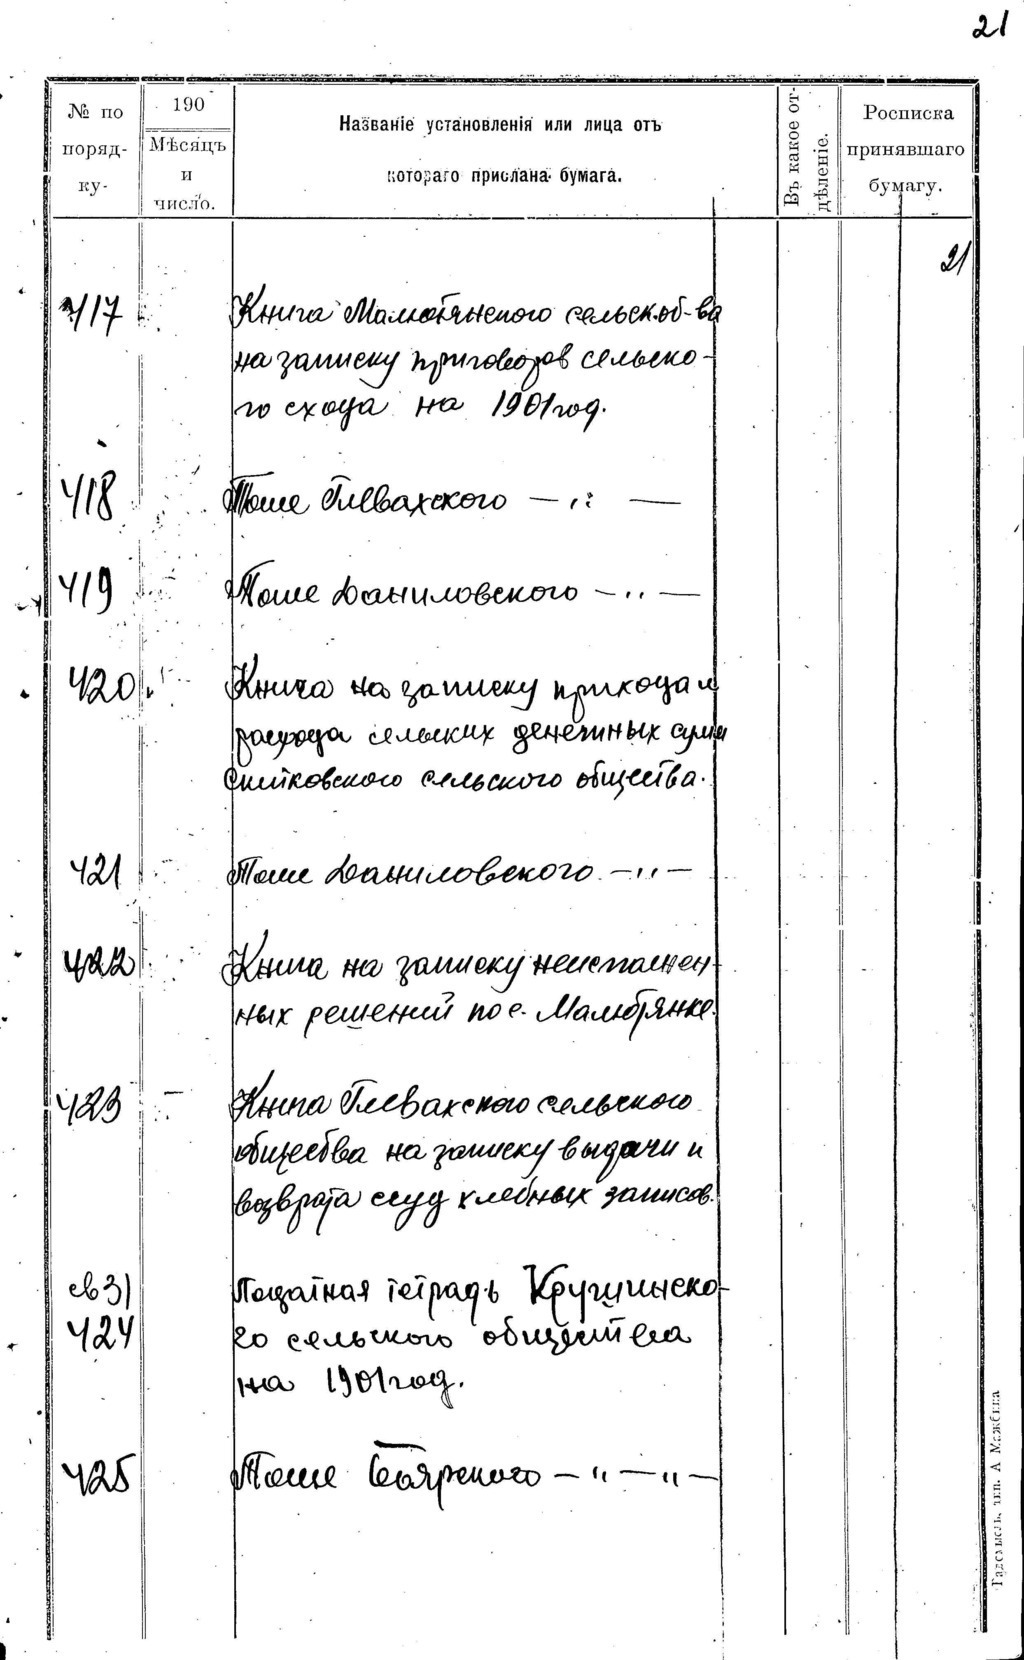 21
№ по поряд- ку-
190
Мѣсяцъ и число.
Названіе установленія или лица отъ
котораго прислана бумага.
Въ какое от-
дѣленіе.
Росписка
принявшаго
бумагу.
21
417 Книга Малютянского сельск.об-ва
на записку приговоров сельско-
го схода на 1901 год.
418 Тоже Глевахского — „ —
419 Тоже Даниловского — „ —
420 Книга на записку прихода и
расхода сельских денежных сумм
сельского общества.
421 Тоже Даниловского — „ —
422 Книга на записку неисполнен-
ных решений по с. Малютянке.
423 Книга Глевахского сельского
общества на записку выдачи и
возврата ссуд хлебных запасов.
св 3)
424 Податная тетрадь Кругшинско-
го сельского общества
на 1901 год.
425 Тоже Боярского — „ — „ —
тип. А